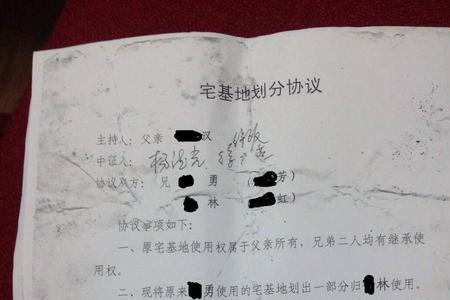 宅基地划分协议
主持人：父亲 汉
中证人：杨
协议双方：兄 勇 （ 芳）
林 （ 虹）
协议事项如下：
一、原宅基地使用权属于父亲所有，兄弟二人均有继承使
用权。
二、现将原来 勇使用的宅基地划出一部分归 林使用。